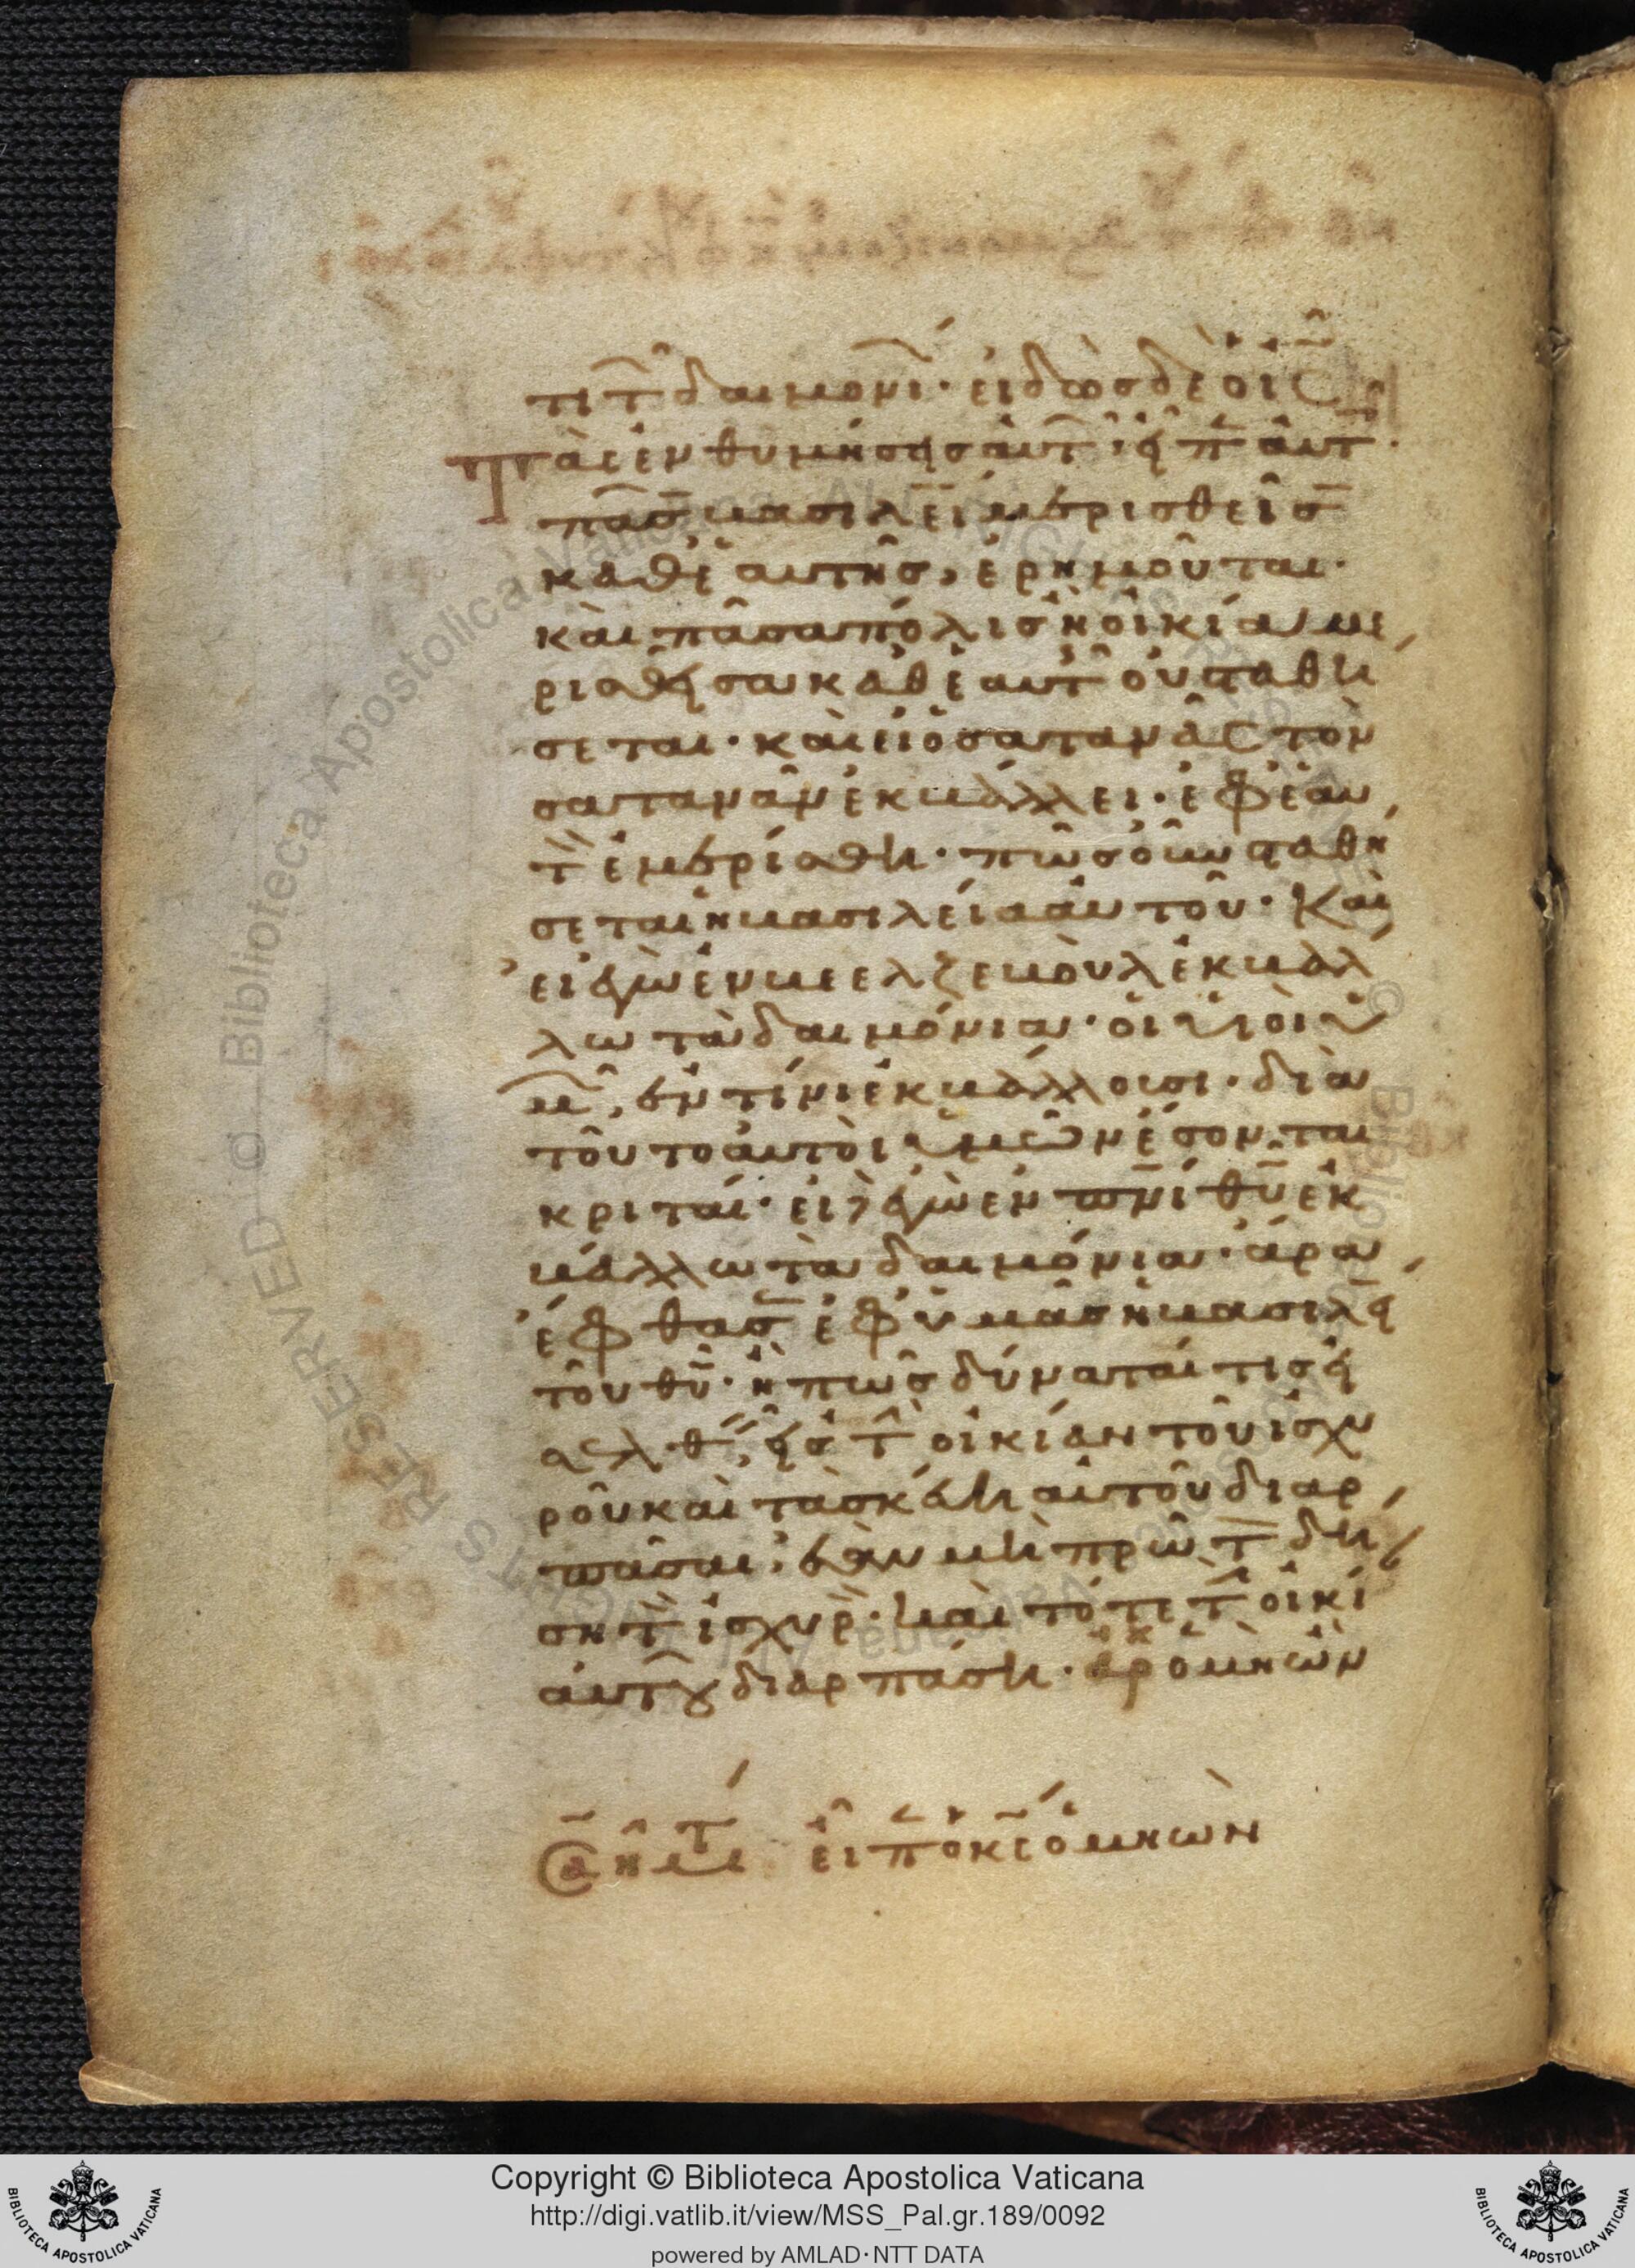 τι τ̑ δαιμονι̑· εἰδὼς δὲ ὁ ις
τὰς ἐνθυμήσεις αὐτ̑, εἶπ̄ αὐτ̑·
πᾶσ̄ βασιλεί̄ μερισθεῖσ̄
καθ' ἑαυτῆς, ἐρημοῦται·
καὶ πᾶσα πόλις ἢ οἰκία με
ρισθεῖσα καθ' ἑαυτ̑ οὐ σταθη
σεται· καὶ εἰ ὁ σατανᾶς τὸν
σατανᾶν ἐκβάλλει· ἐφ' ἑαυ
τ̀ ἐμερίσθη· πῶς οὖν σταθή
σεται ἡ βασιλεία αὐτοῦ· Καὶ
εἰ ἐγὼ ἐν βεελζεβοὺλ ἐκβάλ
λω τὰ δαιμόνια· οἱ υἱοὶ ὑ
μ̑, ἐν τίνι ἐκβάλλουσι· διὰ
τοῦτο αὐτοὶ ὑμῶν ἔσονται
κριταί· εἰ δ' ἐγὼ ἐν π̅ν̅ι̅ θ̅υ̅ ἐκ
βάλλω τὰ δαιμόνια· ἄρα
ἔφθασ̄ ἐφ' ὑμᾶς ἡ βασιλεί
τοῦ θ̅υ̅· ἢ πῶς δύναταί τις εἰ
σελθ, εἰς τ̑ οἰκίαν τοῦ ἰσχυ
ροῦ καὶ τὰ σκεύη αὐτοῦ διαρ
πάσαι, ἐὰν μὴ πρῶτ̄ δή
ση τ̀ ἰσχυρ̀· καὶ τότε τ̑ οἰκί
αὐτοῦ διαρπάση· ὁ μὴ ὢν
εἶπ ὁ κ̅ς̅ ὁ μὴ ὢν
Copyright © Biblioteca Apostolica Vaticana
http://digi.vatlib.it/view/MSS_Pal.gr.189/0092
powered by AMLAD·NTT DATA
BIBLIOTECA APOSTOLICA VATICANA
BIBLIOTECA APOSTOLICA VATICANA